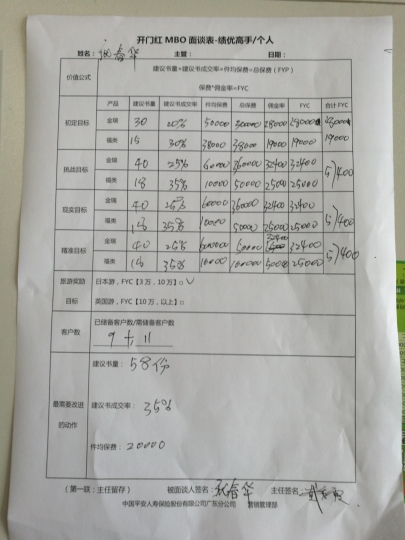 开门红 MBO 面谈表-绩优高手/个人
姓名： 春华 主管： 日期：
价值公式
建议书量*建议书成交率*件均保费=总保费（FYP）
保费*佣金率=FYC
产品 建议书量 建议书成交率 件均保费 总保费 佣金率 FYC 合计 FYC
初定目标 金瑞 30 20% 50000 300000 28000 28000
福类 15 30% 38000 38000 19000 19000 19000
挑战目标 金瑞 40 25% 60000 360000 32400 32400
福类 18 35% 10000 50000 25000 25000 57400
现实目标 金瑞 40 25% 60000 360000 32400 32400
福类 18 35% 10000 50000 25000 25000 57400
精准目标 金瑞 40 25% 32400
福类 18 35% 10000 25000 57400
旅游奖励
目标
日本游，FYC【3 万，10 万】○ √
英国游，FYC【10 万，以上】○
客户数
已储备客户数/需储备客户数
9 + 11
最需要改进
的动作
建议书量：58份
建议书成交率：35%
件均保费：20000
（第一联：主任留存） 被面谈人签名： 春华 主任签名：
中国平安人寿保险股份有限公司广东分公司 营销管理部